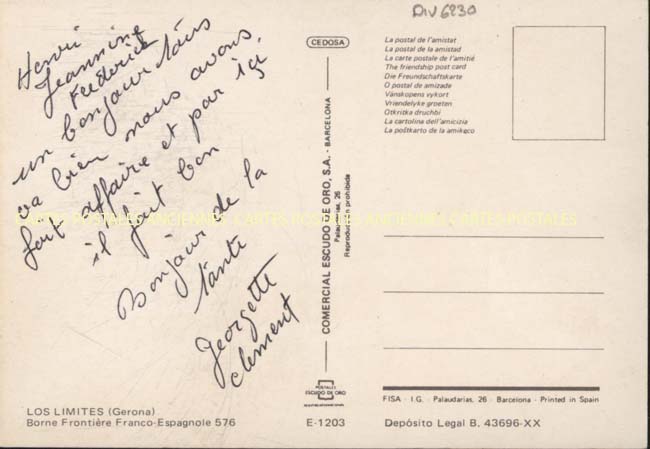 Div 6230
Henri
Jeannine
Frédéric
un bonjour tous
va bien nous avons
fort affaire et par içi
il fait bon
Bonjour de la
tante
Georgette
Clement
LOS LIMITES (Gerona)
Borne Frontière Franco-Espagnole 576
CEDOSA
COMERCIAL ESCUDO DE ORO, S.A. - BARCELONA
Palaudarias, 26
Reproducción prohibida
POSTALES
ESCUDO DE ORO
E-1203
La postal de l'amistat
La postal de la amistad
La carte postale de l'amitié
The friendship post card
Die Freundschaftskarte
O postal de amizade
Vänskopens vykort
Vriendelyke groeten
Otkritka druchbi
La cartolina dell'amicizia
La poštkarto de la amikeco
FISA - I.G. - Palaudarias, 26 - Barcelona - Printed in Spain
Depósito Legal B. 43696-XX
CARTES POSTALES ANCIENNES CARTES POSTALES ANCIENNES CARTES POSTALES